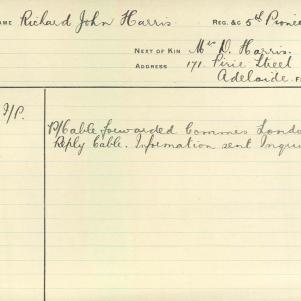 NAME Richard John Harris. REG. &C 5th Pionee
NEXT OF KIN Mr D. Harris.
ADDRESS 171 Pirie Street
Adelaide
I/P.
P/Cable forwarded Commes. Londo
Reply Cable. Information sent Inqui